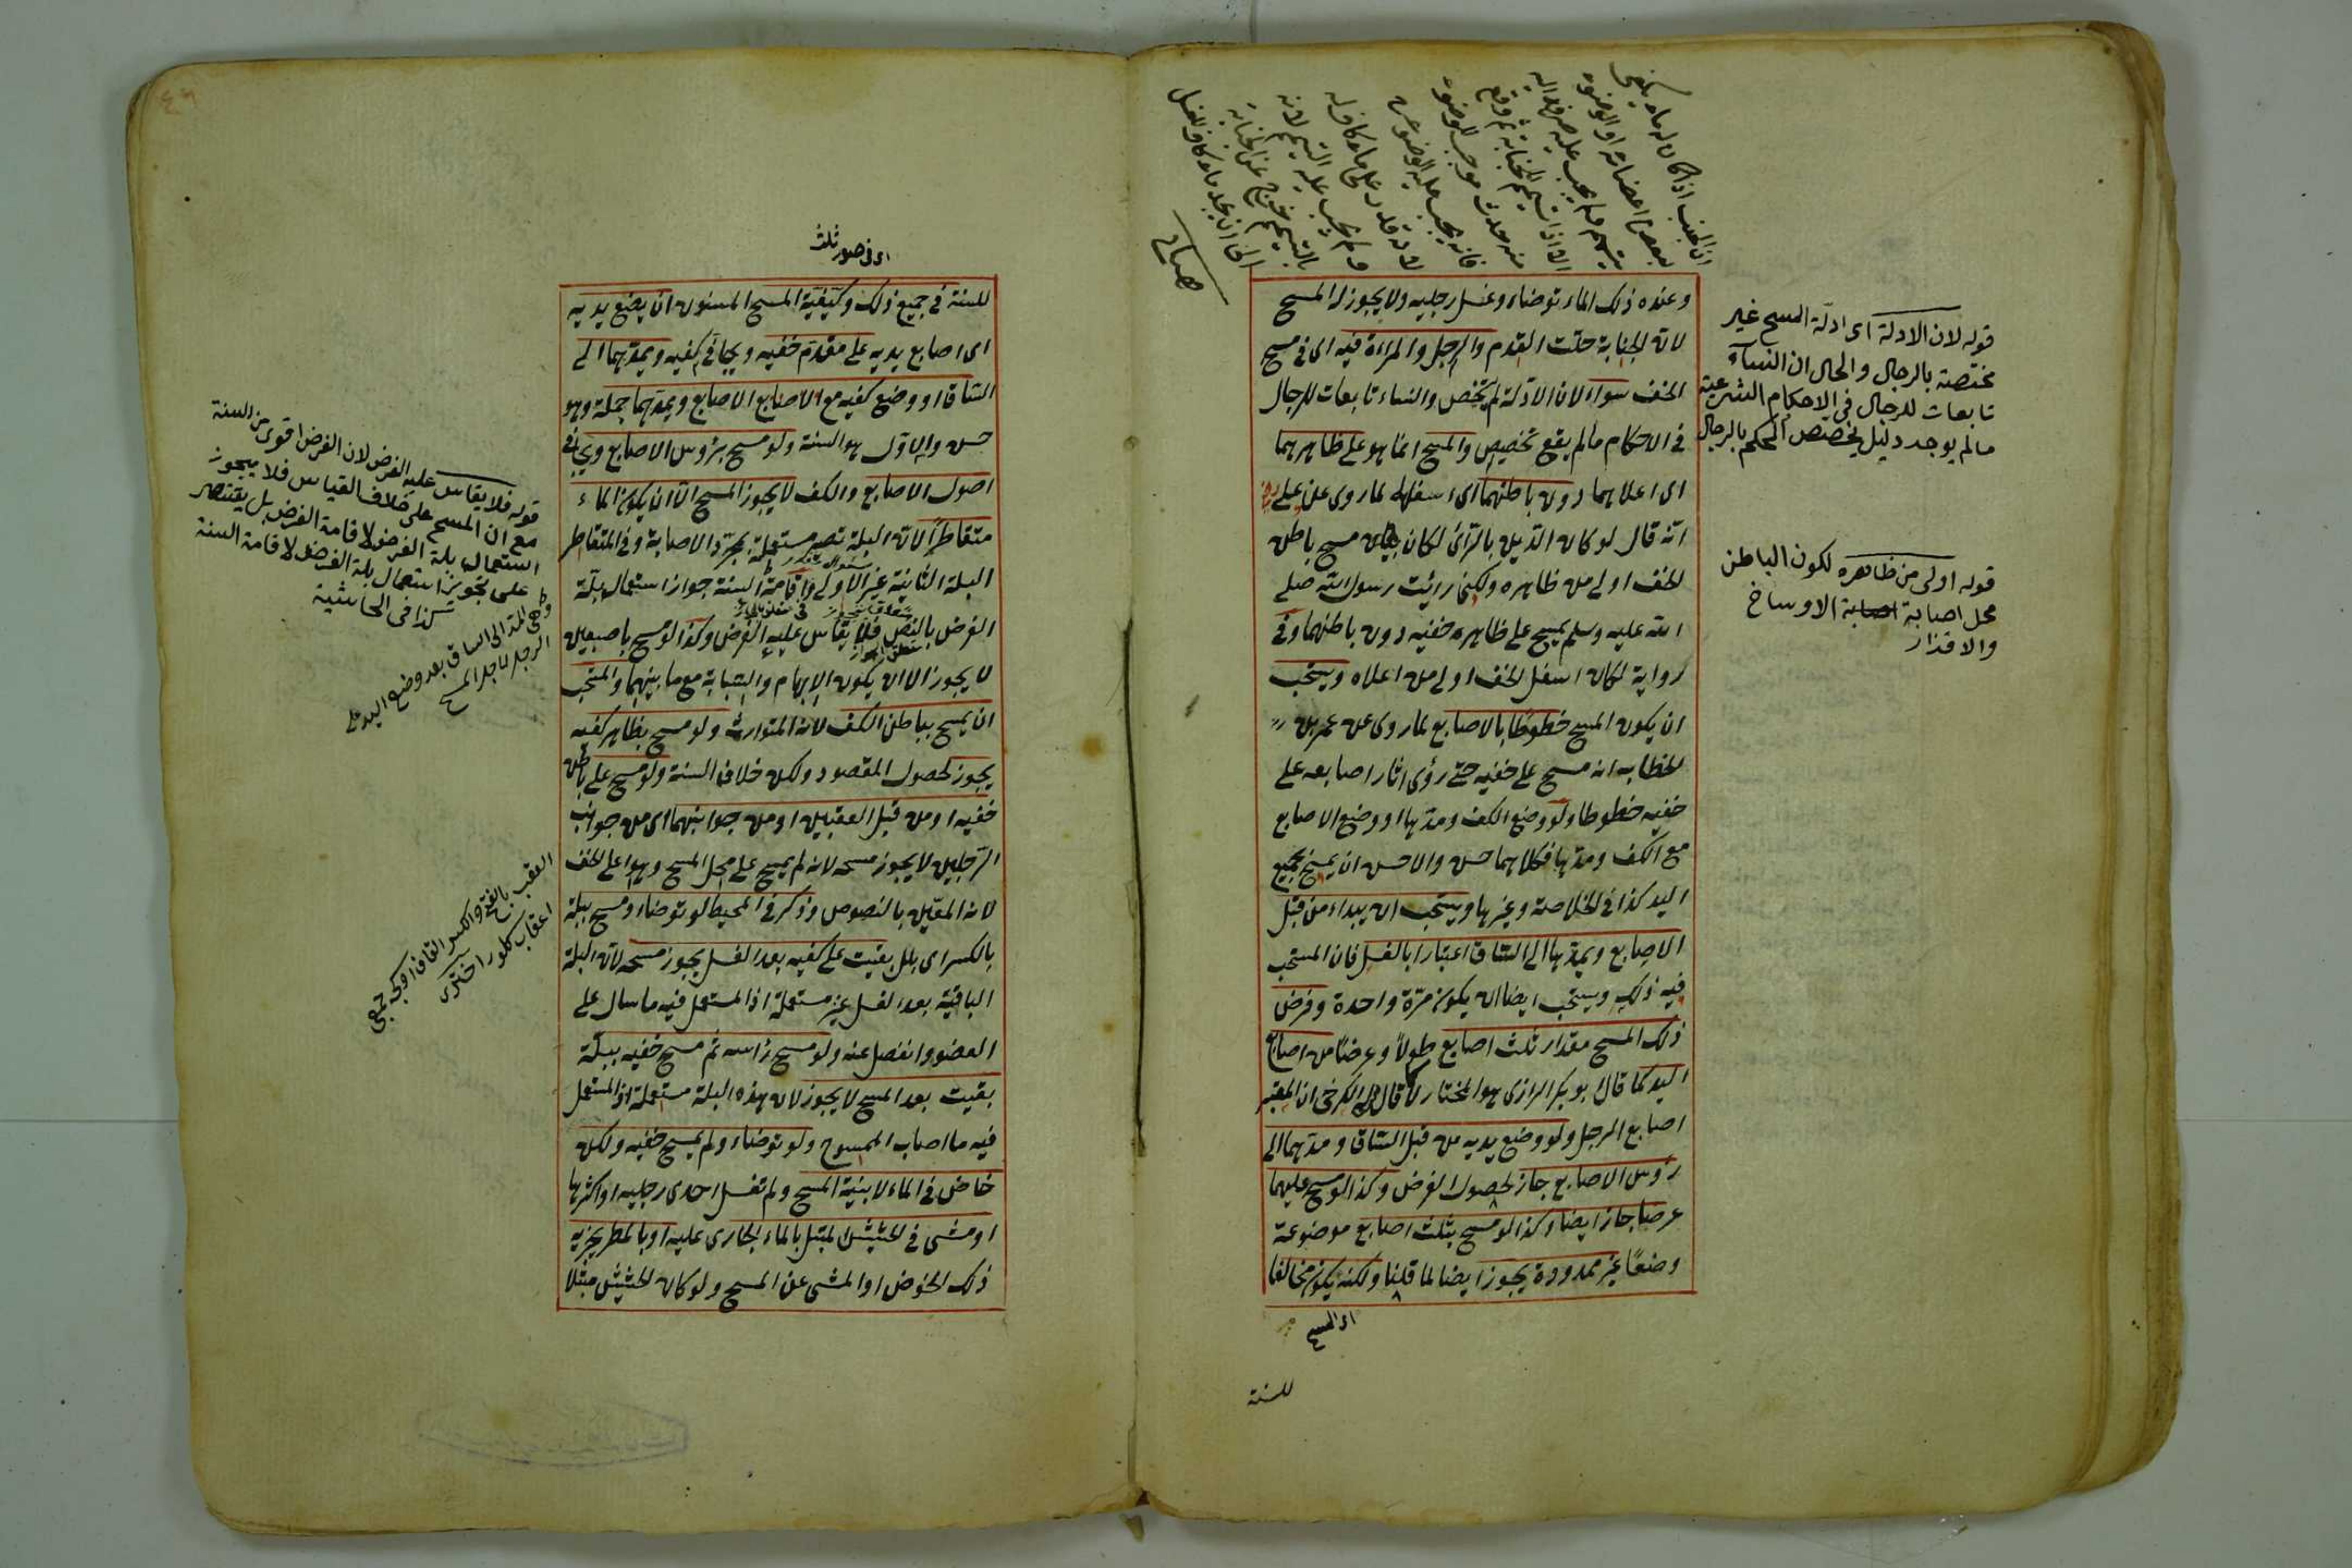 وعنده ذلك الماء توضاء وغسل رجليه ولا يجوز له المسح
لان الجنابة حلت القدم والرجل والمراءة فيه اى فى مسح
الخف سواء لان الادلة لم يختص والنساء تابعات للرجال
فى الاحكام مالم يقع تخصيص والمسح انما هو على ظاهرهما
اى اعلاهما دون باطنهما اى اسفلهما لما روى عن على
انه قال لو كان الدين بالرائ لكان مسح باطن
الخف اولى من ظاهره ولكنى رايت رسول الله صلى
الله عليه وسلم يمسح على ظاهره خفيه دون باطنهما وفى
رواية لكان اسفل الخف اولى من اعلاه ويستحب
ان يكون المسح خطوطا بالاصابع لما روى عن عمر بن
الخطاب انه مسح على خفيه حتى رؤى اثار اصابعه على
خفيه خطوطا ولو وضع الكف ومدها او وضع الاصابع
مع الكف ومدها فكلاهما حسن والاحسن ان يمسح بجميع
اليد كذا فى الخلاصة وغيرها ويستحب ان يبداء من قبل
الاصابع ويمدها الى الساق اعتبارا بالغسل فان المستحب
فيه ذلك ويستحب ايضا ان يكون مرة واحدة وفرض
ذلك المسح مقدار ثلث اصابع طولا وعرضا من اصابع
اليد كما قال ابو بكر الرازى هو المختار لا قال الكرخى ان المعتبر
اصابع الرجل ولو وضع يديه من قبل الساق ومدهما الى
رؤس الاصابع جاز لحصول الفرض وكذا لو مسح عليهما
عرضا جاز ايضا وكذا لو مسح بثلث اصابع موضوعة
وضعا غير ممدودة يجوز ايضا لما قلنا ولكنه يكون مخالفا
اى المسح
للسنة
ان الجنب اذا كان له ماء يكفى
لبعض اعضائه او الوضوء
يتيمم ولم يجب عليه صرفه اليه
الا اذا تيمم للجنابة ثم وقع
منه حدث موجب للوضوء
فانه يجب عليه الوضوء
لانه قدر على ماء كاف له
ولم يجب عليه التيمم لانه
بالتيمم خرج عن الجنابة
الى ان يجد ماء كاف للغسل
قوله لان الادلة اى ادلة المسح غير
مختصة بالرجال والحال ان النساء
تابعات للرجال فى الاحكام الشرعية
مالم يوجد دليل يخصص الحكم بالرجال
قوله اولى من ظاهره لكون الباطن
محل اصابة الاوساخ
والاقذار
اى فى صور ثلث
للسنة فى جميع ذلك وكيفية المسح المسنون ان يضع يديه
اى اصابع يديه على مقدم خفيه ويجافى كفيه ويمدهما الى
الساق او وضع كفيه مع الاصابع الاصابع ويمدهما جملة وهو
حسن والاول هو السنة ولو مسح برؤس الاصابع ويجافى
اصول الاصابع والكف لا يجوز المسح الا ان يكون الماء
متقاطرا لان البلة تصير مستعملة بمجرد الاصابة وفى المتقاطر
البلة الثانية غير الاولى واقامة السنة جواز استعمال بلة
الفرض بالنص فلا يقاس عليه الفرض وكذا لو مسح باصبعين
لا يجوز الا ان يكون الابهام والسبابة مع ما بينهما والمستحب
ان يمسح بباطن الكف لانه المتوارث ولو مسح بظاهر كفيه
يجوز لحصول المقصود ولكن خلاف السنة ولو مسح على باطن
خفيه او من قبل العقبين او من جوانبهما اى من جوانب
الرجلين لا يجوز مسحه لانه لم يمسح على محل المسح وهو اعلى الخف
لانه المعين بالنصوص وذكر فى المحيط لو توضاء ومسح ببلة
بالكسر اى بلل بقيت على كفيه بعد الغسل يجوز مسحه لان البلة
الباقية بعد الغسل غير مستعملة اذ المستعمل فيه ما سال على
العضو وانفصل عنه ولو مسح رأسه ثم مسح خفيه ببلة
بقيت بعد المسح لا يجوز لان هذه البلة مستعملة اذ المستعمل
فيه ما اصاب الممسوح ولو توضاء ولم يمسح خفيه ولكن
خاض فى الماء لا بنية المسح ولم تغسل احدى رجليه او اكثرها
او مشى فى الحشيش المبتل بالماء الجارى عليه او بالمطر يجزيه
ذلك الخوض او المشى عن المسح ولو كان الحشيش مبتلا
قوله فلا يقاس عليه الفرض لان الفرض اقوى من السنة
مع ان المسح على خلاف القياس فلا يجوز
استعمال بلة الفرض لاقامة الفرض بل يقتصر
على تجويز استعمال بلة الفرض لاقامة السنة
كذا فى الحاشية
وهى المد الى الساق بعد وضع اليد على
الرجل لاجل المسح
العقب بالفتح والكسر القاف
اعقاب كلور اخترى